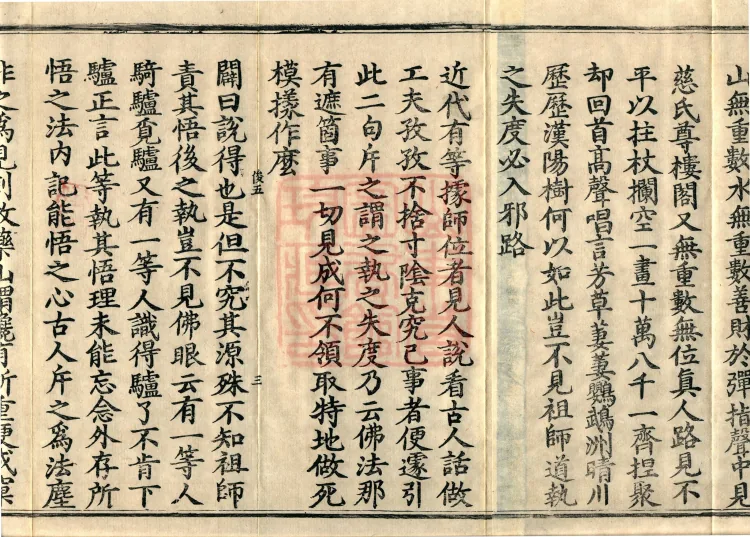 山無重數水無重數善財於彈指聲中見
慈氏尊樓閣又無重數無位真人路見不
平以拄杖攔空一畫十萬八千一齊捏聚
却回首高聲唱言芳草萋萋鸚鵡洲晴川
歷歷漢陽樹何以如此豈不見祖師道執
之失度必入邪路
近代有等據師位者見人說看古人話做
工夫孜孜不捨寸陰克究己事者便遽引
此二句斥之謂之執之失度乃云佛法那
有遮箇事一切見成何不領取特地做死
模㨾作麼
後五
三
闢曰說得也是但不究其源殊不知祖師
責其悟後之執豈不見佛眼云有一等人
騎驢覓驢又有一等人識得驢了不肯下
驢正言此等執其悟理未能忘念外存所
悟之法內記能悟之心古人斥之爲法塵